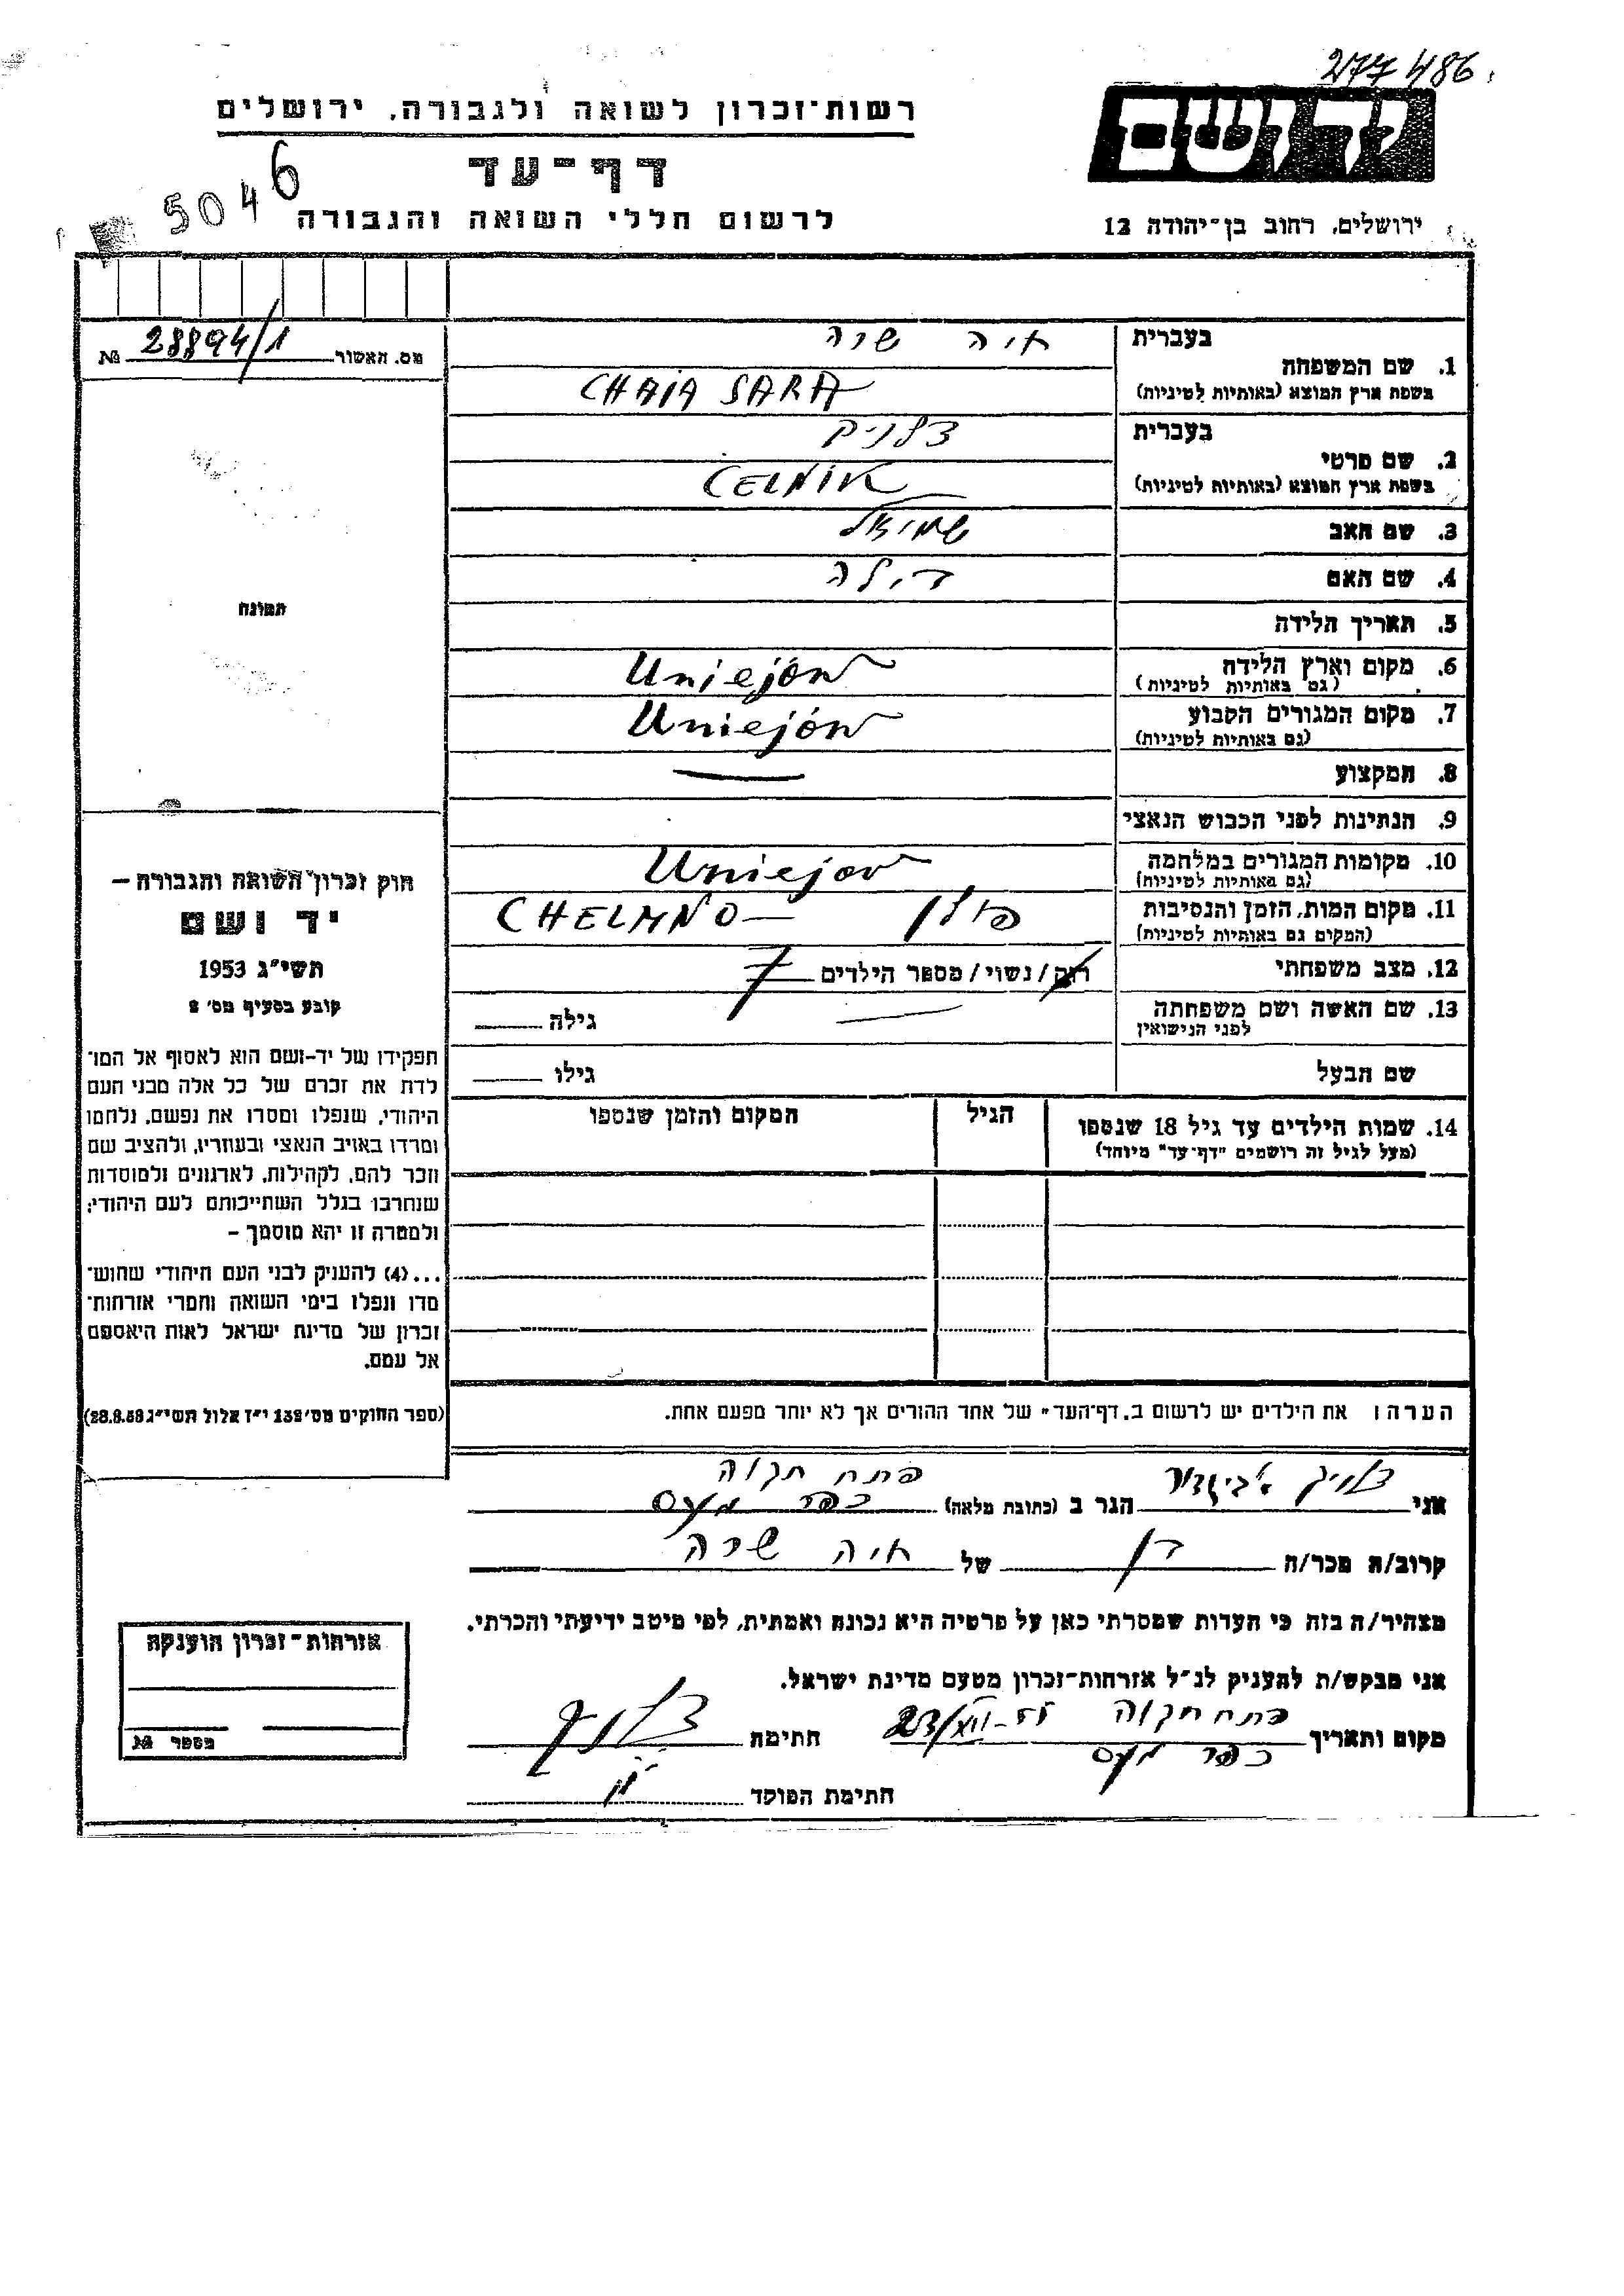 277486
יד ושם
רשות־זכרון לשואה ולגבורה, ירושלים
דף־עד
5046
לרשום חללי השואה והגבורה
ירושלים, רחוב בן־יהודה 12
מס. האשור 28894/1 №
תמונה
חוק זכרון השואה והגבורה —
יד ושם
תשי״ג 1953
קובע בסעיף מס׳ 2
תפקידו של יד-ושם הוא לאסוף אל המו־
לדת את זכרם של כל אלה מבני העם
היהודי, שנפלו ומסרו את נפשם, נלחמו
ומרדו באויב הנאצי ובעוזריו, ולהציב שם
וזכר להם, לקהילות, לארגונים ולמוסדות
שנחרבו בגלל השתייכותם לעם היהודי;
ולמטרה זו יהא מוסמך —
...(4) להעניק לבני העם היהודי שהוש־
מדו ונפלו בימי השואה והמרי אזרחות־
זכרון של מדינת ישראל לאות היאספם
אל עמם.
(ספר החוקים מס׳ 132 י״ז אלול תשי״ג 28.8.53)
בעברית חיה שרה
1. שם המשפחה
בשפת ארץ המוצא (באותיות לטיניות) CHAIA SARA
בעברית צלניק
2. שם פרטי
בשפת ארץ המוצא (באותיות לטיניות) CELNIK
3. שם האב שמואל
4. שם האם דילה
5. תאריך הלידה
6. מקום וארץ הלידה Uniejów
(גם באותיות לטיניות)
7. מקום המגורים הקבוע Uniejów
(גם באותיות לטיניות)
8. המקצוע —
9. הנתינות לפני הכבוש הנאצי
10. מקומות המגורים במלחמה Uniejow
(גם באותיות לטיניות)
11. מקום המות, הזמן והנסיבות פולין CHELMNO —
(המקום גם באותיות לטיניות)
12. מצב משפחתי רוק/נשוי/מספר הילדים 7
13. שם האשה ושם משפחתה — גילה
לפני הנישואין
שם הבעל גילו
14. שמות הילדים עד גיל 18 שנספו הגיל המקום והזמן שנספו
(מעל לגיל זה רושמים "דף־עד" מיוחד)
הערה: את הילדים יש לרשום ב„דף־העד" של אחד ההורים אך לא יותר מפעם אחת.
פתח תקוה
אני צלניק אביגדור הגר ב (כתובת מלאה) כפר מעס
קרוב/ה מכר/ה בן של חיה שרה
מצהיר/ה בזה כי העדות שמסרתי כאן על פרטיה היא נכונה ואמתית, לפי מיטב ידיעתי והכרתי.
אני מבקש/ת להעניק לנ״ל אזרחות־זכרון מטעם מדינת ישראל.
מקום ותאריך פתח תקוה 23/XII-55 חתימת צלניק
כפר מעס
חתימת הפוקד
אזרחות־זכרון הוענקה
מספר №